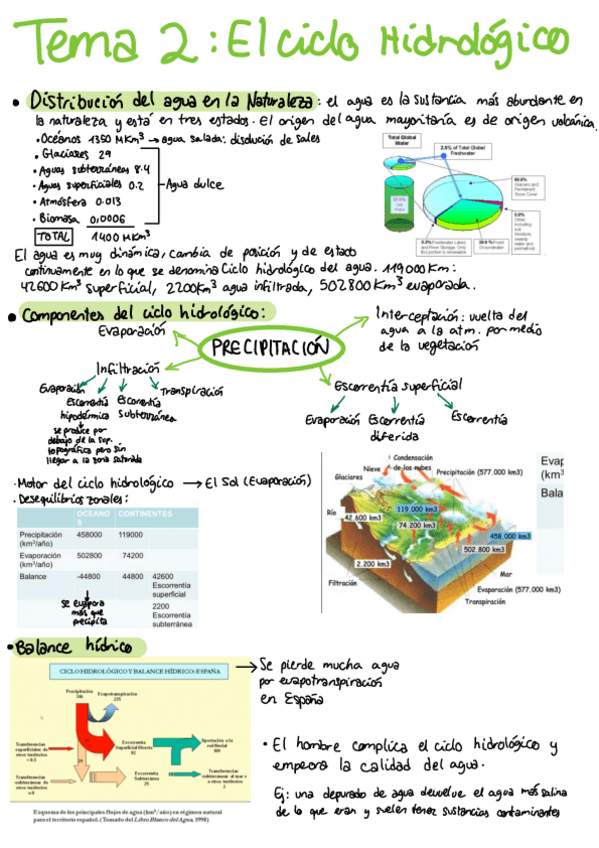 Tema 2: El ciclo Hidrológico
• Distribución del agua en la Naturaleza: el agua es la sustancia más abundante en
la naturaleza y está en tres estados. El origen del agua mayoritaría es de origen volcánica.
• Océanos 1350 MKm³ → agua salada: disolución de sales
• Glaciares 29
• Aguas subterráneas 8.4
• Aguas superficiales 0.2
• Atmósfera 0.013
• Biomasa 0,0006
Agua dulce
TOTAL 1400 MKm³
Total Global
Water
2.5% of Total Global
Freshwater
El agua es muy dinámica, cambia de posición y de estado
continuamente en lo que se denomina Ciclo hidrológico del agua. 119000 Km:
42600 Km³ superficial, 2200Km³ agua infiltrada, 502800 Km³ evaporada.
• Componentes del ciclo hidrológico:
Evaporación
PRECIPITACIÓN
Intercepción: vuelta del
agua a la atm. por medio
de la vegetación
Infiltración
Evaporación
Escorrentía
hipodérmica
Escorrentía
Subterránea
Transpiración
se produce por
debajo de la sup.
topográfica pero sin
llegar a la zona saturada
Escorrentía superficial
Evaporación
Escorrentía
diferida
Escorrentía
• Motor del ciclo hidrológico → El Sol (Evaporación)
• Desequilibrios zonales:
OCEANOS CONTINENTES
Precipitación (km³/año) 458000 119000
Evaporación (km³/año) 502800 74200
Balance -44800 44800 42600 Escorrentía superficial
2200 Escorrentía subterránea
se evapora
más que
precipita
Condensación
de las nubes
Nieve
Glaciares
Precipitación (577.000 km3)
Río
42.600 km3
119.000 km3
74.200 km3
458.000 km3
502.800 km3
2.200 km3
Filtración
Mar
Evaporación (577.000 km3)
Transpiración
Evap
(km³
Bala
• Balance hídrico
CICLO HIDROLÓGICO Y BALANCE HÍDRICO: ESPAÑA
Precipitación
Evapotranspiración
235
Escorrentía
Superficial Directa
82
Aportación a la
red fluvial
109
Transferencias
superficiales de
otros territorios
Escorrentía
Subterránea
29
Transferencias
subterráneas de
otros territorios
Transferencias
subterráneas al mar o
a otros territorios
2
Esquema de los principales flujos de agua (km³/ año) en régimen natural
para el territorio español. (Tomado del Libro Blanco del Agua, 1998)
→ Se pierde mucha agua
por evapotranspiración
en España
• El hombre complica el ciclo hidrológico y
empeora la calidad del agua.
Ej: una depurado de agua devuelve el agua más salina
de lo que eran y suelen tener sustancias contaminantes